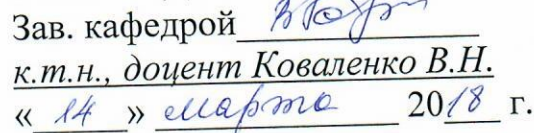 Зав. кафедрой
к.т.н., доцент Коваленко В.Н.
« 14 » марта 2018 г.